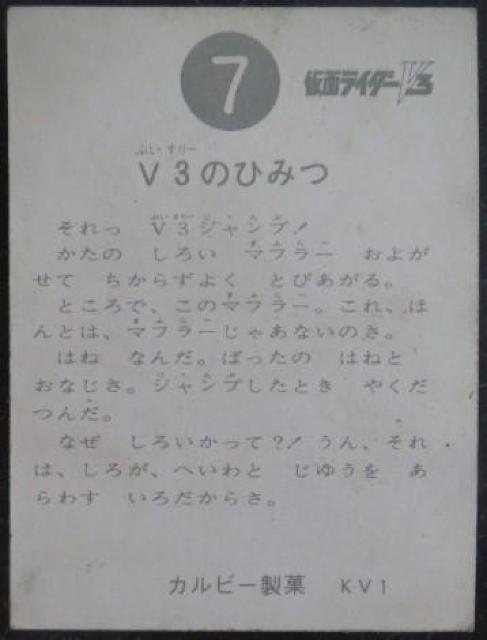 7
仮面ライダーV3
ぶい すりー
V3のひみつ
それっ V3ジャンプ!
かたの しろい マフラー およが
せて ちからずよく とびあがる。
ところで、このマフラー。これ、ほ
んとは、マフラーじゃあないのさ。
はね なんだ。ばったの はねと
おなじさ。ジャンプしたとき やくだ
つんだ。
なぜ しろいかって?! うん、それ
は、しろが、へいわと じゆうを あ
らわす いろだからさ。
カルビー製菓 KV1